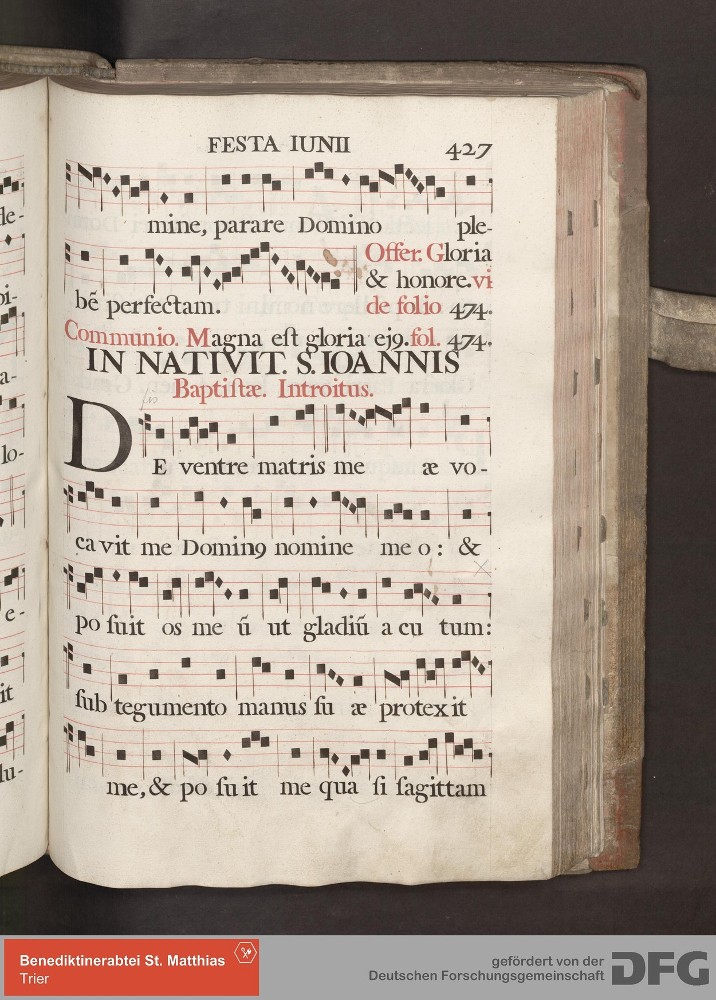 le-
pi-
a-
lo-
e-
it
lu-
FESTA IUNII 427
mine, parare Domino ple-
bē perfectam.
Offer. Gloria
& honore. vi
de folio 474.
Communio. Magna eſt gloria ej9. fol. 474.
IN NATIVIT. S. IOANNIS
Baptiſtæ. Introitus.
DE ventre matris me æ vo-
ca vit me Domin9 nomine me o : &
po ſuit os me ū ut gladiū a cu tum:
ſub tegumento manus ſu æ protex it
me, & po ſu it me qua ſi ſagittam
Benediktinerabtei St. Matthias
Trier
gefördert von der
Deutschen Forschungsgemeinschaft
DFG